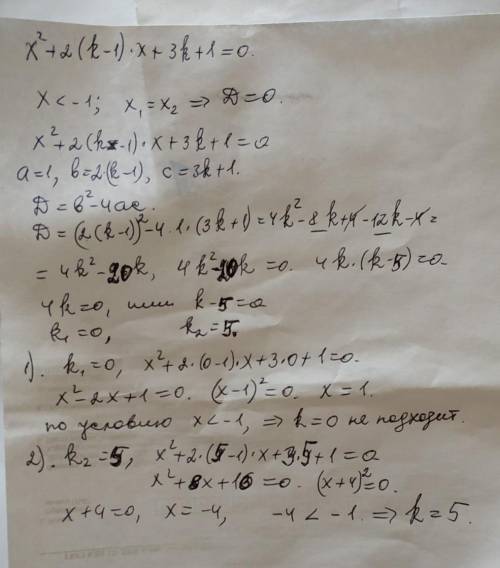 x² + 2(k-1)·x + 3k + 1 = 0.
x < -1; x₁ = x₂ => D = 0.
x² + 2(k-1)·x + 3k + 1 = 0
a = 1, b = 2(k-1), c = 3k + 1.
D = b² - 4ac.
D = (2(k-1))² - 4·1·(3k+1) = 4k² - 8k + 4 - 12k - 4 =
= 4k² - 20k, 4k² - 20k = 0. 4k·(k-5) = 0
4k = 0, или k - 5 = 0
k₁ = 0, k₂ = 5.
1). k₁ = 0, x² + 2·(0-1)·x + 3·0 + 1 = 0.
x² - 2x + 1 = 0. (x-1)² = 0. x = 1.
по условию x < -1, => k = 0 не подходит.
2). k₂ = 5, x² + 2·(5-1)·x + 3·5 + 1 = 0
x² + 8x + 16 = 0. (x+4)² = 0.
x + 4 = 0, x = -4, -4 < -1. => k = 5.